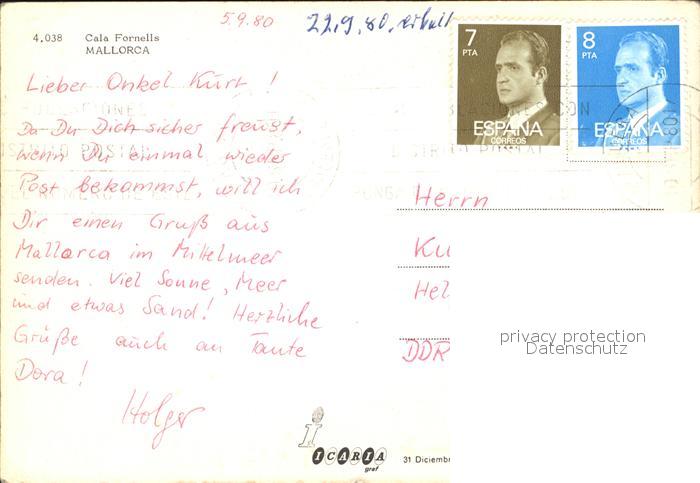 5.9.80
22.9.80. erhalt
4.038 Cala Fornells
MALLORCA
7
PTA
ESPAÑA
CORREOS
8
PTA
ESPAÑA
CORREOS
Lieber Onkel Kurt!
Da Du Dich sicher freust,
wenn Du einmal wieder
Post bekommst, will ich
Dir einen Gruß aus
Mallorca im Mittelmeer
senden. Viel Sonne, Meer
und etwas Sand! Herzliche
Grüße auch an Tante
Dora!
Holger
Herrn
Ku
Hel
DDR
privacy protection
Datenschutz
ICARIA
graf
31 Diciemb